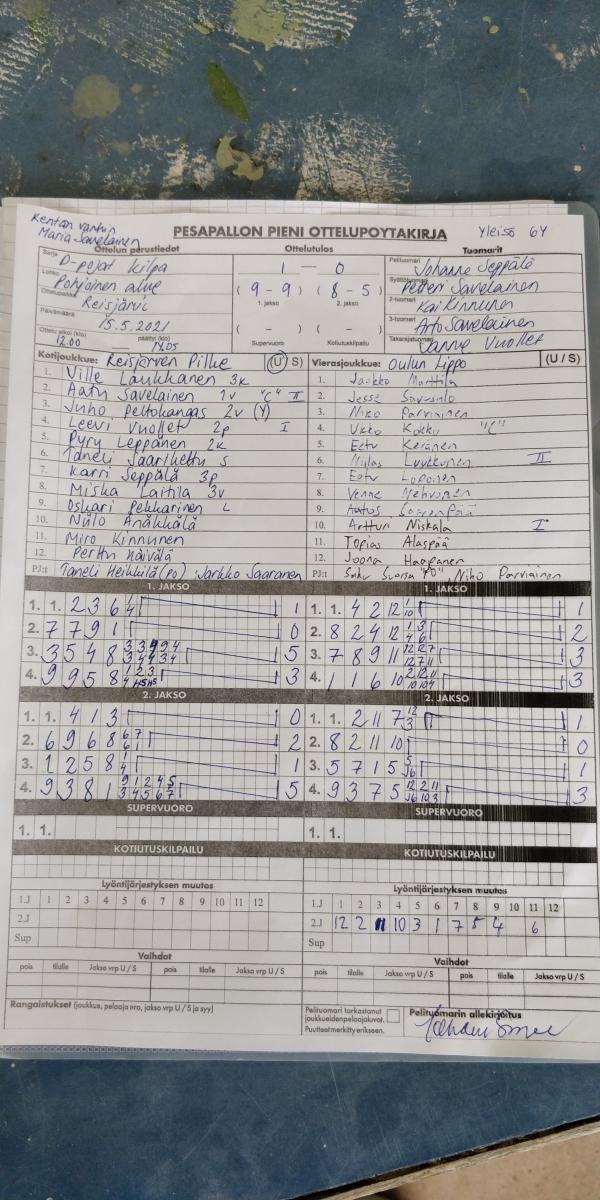 Kentän vanhin
Maria Savelainen
Yleisö 64
PESÄPALLON PIENI OTTELUPÖYTÄKIRJA
Ottelun perustiedot
Ottelutulos
Tuomarit
Sarja
D-pojat kilpa
1 — 0
Pelituomari
Johanne Seppälä
Lohko
Pohjoinen alue
(9-9) (8-5)
Petteri Savelainen
Ottelupaikka
Reisjärvi
1. jakso 2. jakso
2-tuomari
Kai Kinnunen
Päivämäärä
15.5.2021
(-) (-)
3-tuomari
Arto Savelainen
Ottelu alkoi (klo) päättyi (klo)
12.00 14.05
Supervuoro Kotiutuskilpailu
Takarajatuomari
Janne Vuollet
Kotijoukkue: Reisjärven Pilke (U/S)
1. Ville Laukkanen 3k
2. Aatu Savelainen 1v "C" II
3. Juho Peltokangas 2v (Y)
4. Leevi Vuollet 2p I
5. Pyry Leppänen 2k
6. Taneli Saarikettu S
7. Karri Seppälä 3p
8. Miska Laitila 3v
9. Oskari Pekkarinen L
10. Niilo Änäkkälä
11. Miro Kinnunen
12. Perttu Näivälä
PJ:t Taneli Heikkilä (PO) Jarkko Saaranen
Vierasjoukkue: Oulun Lippo (U/S)
1. Jaakko Marttila
2. Jesse
3. Niko Parviainen
4. Ukko Kokko "C"
5. Eetu Keränen
6. Luukkonen II
7. Eetu
8.
9.
10. Artturi Niskala I
11. Topias Alaspää
12. Joona Haapanen
PJ:t "PO", Niko Parviainen
1. JAKSO
1. 1. 2 3 6 4 1
2. 7 7 9 1 0
3. 3 5 4 8 5
4. 9 9 5 8 3
1. JAKSO
1. 1. 4 2 12 1
2. 8 2 4 12 2
3. 7 8 9 11 3
4. 1 1 6 10 3
2. JAKSO
1. 1. 4 1 3 0
2. 6 9 6 8 2
3. 1 2 5 8 1
4. 9 3 8 1 5
2. JAKSO
1. 1. 2 11 7 1
2. 8 2 11 10 0
3. 5 7 1 5 1
4. 9 3 7 5 3
SUPERVUORO
1. 1.
SUPERVUORO
1. 1.
KOTIUTUSKILPAILU
KOTIUTUSKILPAILU
Lyöntijärjestyksen muutos
1.J 1 2 3 4 5 6 7 8 9 10 11 12
2.J
Sup
Lyöntijärjestyksen muutos
1.J 1 2 3 4 5 6 7 8 9 10 11 12
2.J 12 2 11 10 3 1 7 5 4 6
Sup
Vaihdot
pois tilalle Jakso vrp U / S pois tilalle Jakso vrp U / S
Vaihdot
pois tilalle Jakso vrp U / S pois tilalle Jakso vrp U / S
Rangaistukset (joukkue, pelaaja nro, jakso vrp U / S ja syy)
Pelituomari tarkastanut
joukkueiden pelaajaluvat.
Puutteet merkitty erikseen.
Pelituomarin allekirjoitus